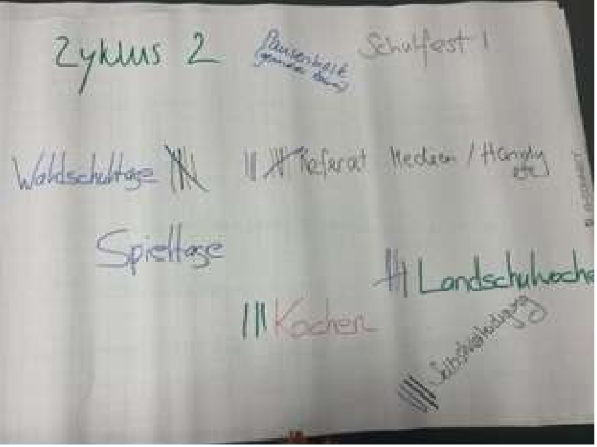 Zyklus 2
Pausenkiosk
Schulfest I
Waldschultage
Referat Medien / Handy
etc
Spieltage
Landschulwoche
Kochen
Selbstverteidigung